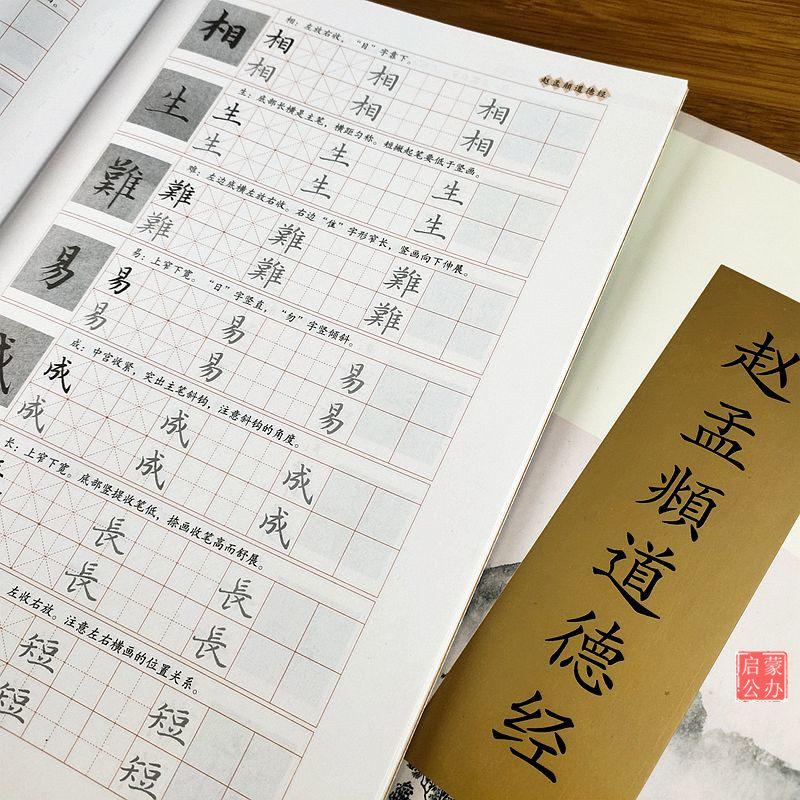 赵孟頫道德经
相：左放右收，“目”字靠下。
相 相
相 相 相
相 相
生：底部长横是主笔，横距匀称。短撇起笔要低于竖画。
生 生 生 生
生 生 生
难：左边底横左放右收。右边“隹”字形窄长，竖画向下伸展。
難 難 難 難
難 難 難
易：上窄下宽。“日”字竖直，“勿”字竖倾斜。
易 易 易 易
易 易 易
成：中宫收紧，突出主笔斜钩，注意斜钩的角度。
成 成 成 成
成 成 成
长：上窄下宽。底部竖提收笔低，捺画收笔高而舒展。
長 長
長 長
左收右放。注意左右横画的位置关系。
短 短
短 短
赵孟頫道德经
启蒙
公办